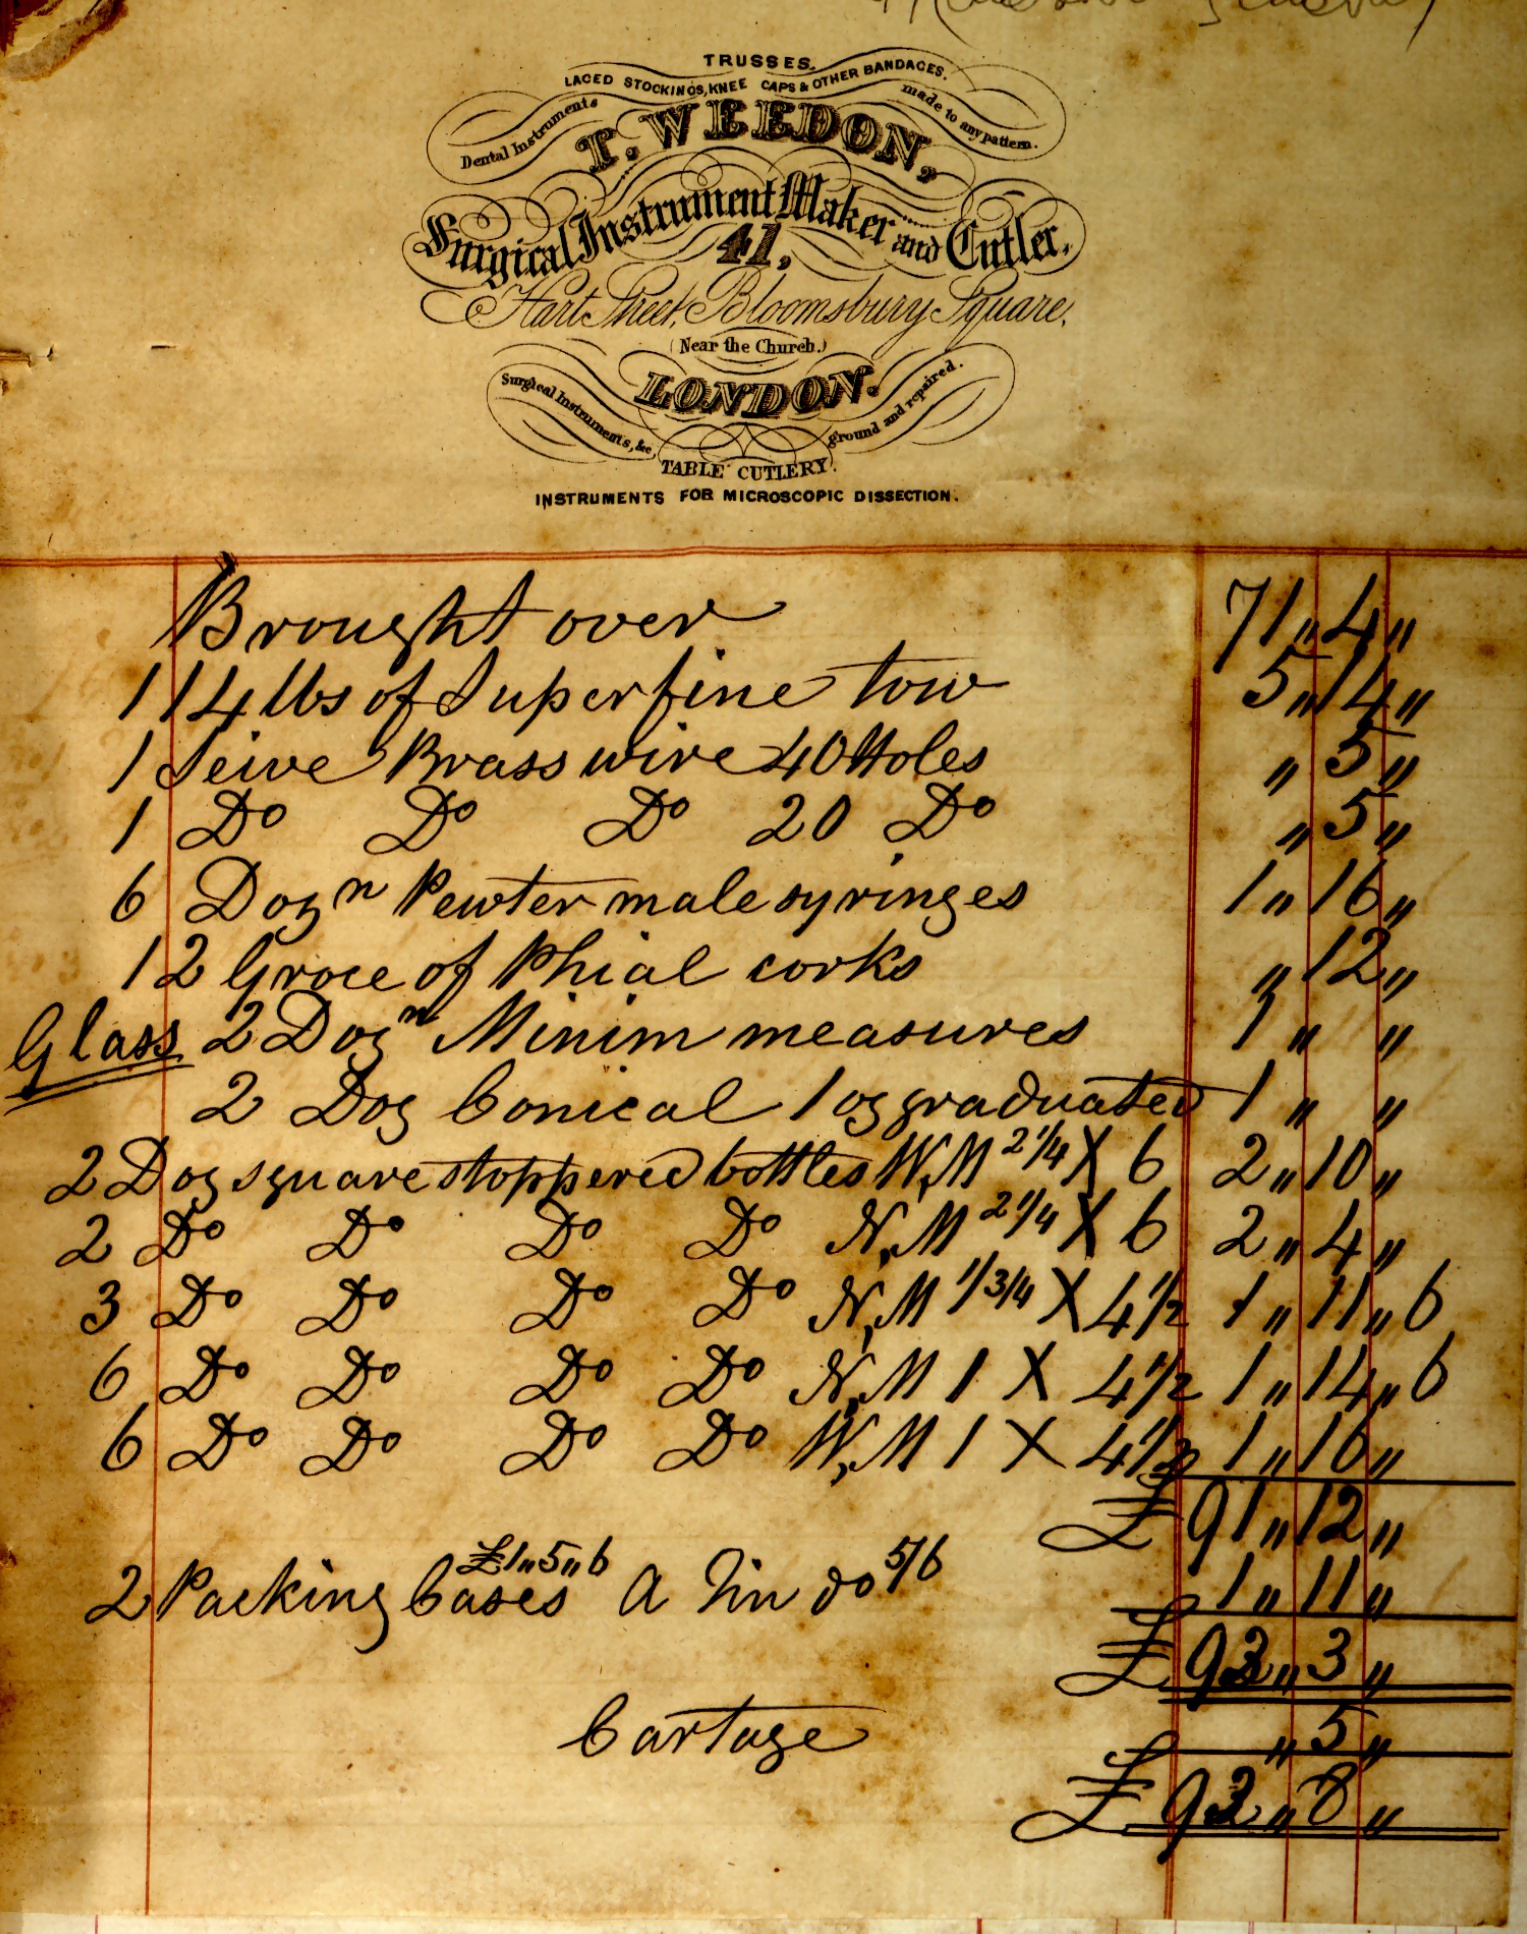 TRUSSES.
LACED STOCKINGS, KNEE CAPS & OTHER BANDAGES.
Dental Instruments
made to any pattern.
T. WEEDON,
Surgical Instrument Maker and Cutler.
41,
Hart Street, Bloomsbury Square.
(Near the Church.)
LONDON.
Surgical Instruments, &c,
ground and repaired.
TABLE CUTLERY.
INSTRUMENTS FOR MICROSCOPIC DISSECTION.
Brought over 71 " 4 "
114 lbs of Superfine tow 5 " 14 "
1 Seive Brass wire 40 Holes " 5 "
1 Do Do Do 20 Do " 5 "
6 Dozn Pewter male syringes 1 " 16 "
12 Groce of Phial corks " 12 "
Glass 2 Dozn Minim measures 1 " "
2 Doz Conical 1 oz graduated 1 " "
2 Doz square stoppered bottles W,M 2 1/4 X 6 2 " 10 "
2 Do Do Do Do N,M 2 1/4 X 6 2 " 4 "
3 Do Do Do Do N,M 1/3/4 X 4 1/2 1 " 11 " 6
6 Do Do Do Do N,M 1 X 4 1/2 1 " 14 " 6
6 Do Do Do Do W,M 1 X 4 1/2 1 " 16 "
£ 91 " 12 "
2 Packing Cases £1 " 5 " 6 A Tin do 5/6 1 " 11 "
£ 93 " 3 "
Cartage " 5 "
£ 93 " 8 "